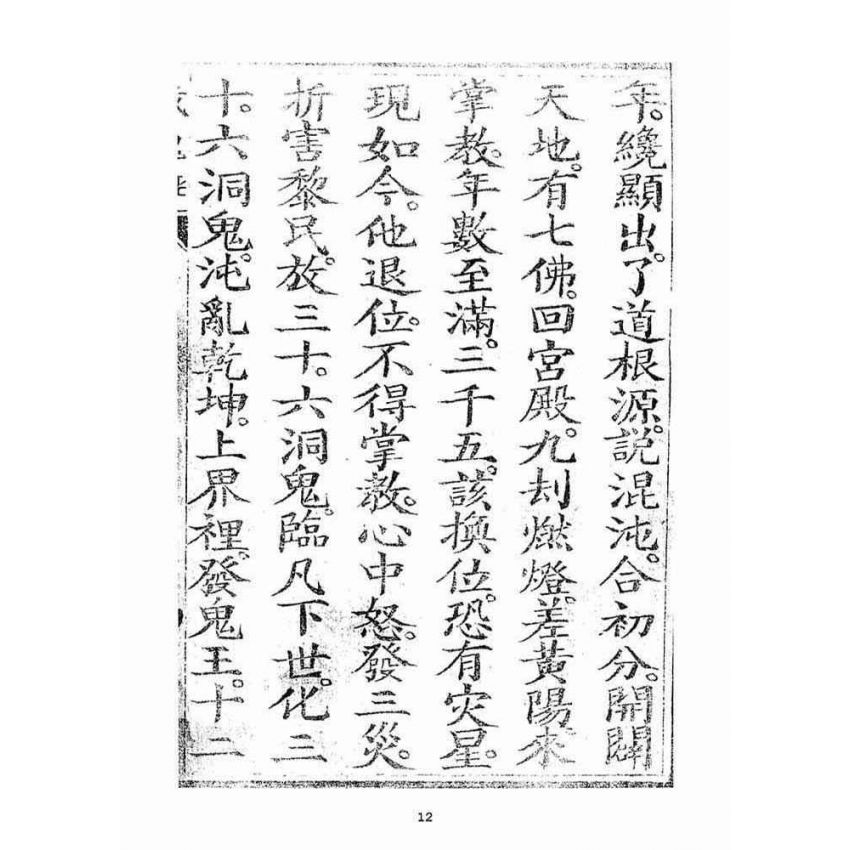 年。纔顯出。了道根源。説混沌。合初分。開闢
天地。有七佛。回宮殿。九刦燃燈。差黃陽來
掌教。年數至滿。三千五。該換位。恐有灾星。
現如今。他退位。不得掌教。心中怒。發三災。
折害黎民。放三十。六洞鬼。臨凡下世。化三
十。六洞鬼。沌亂乾坤。上界裡。發鬼王。十二
12